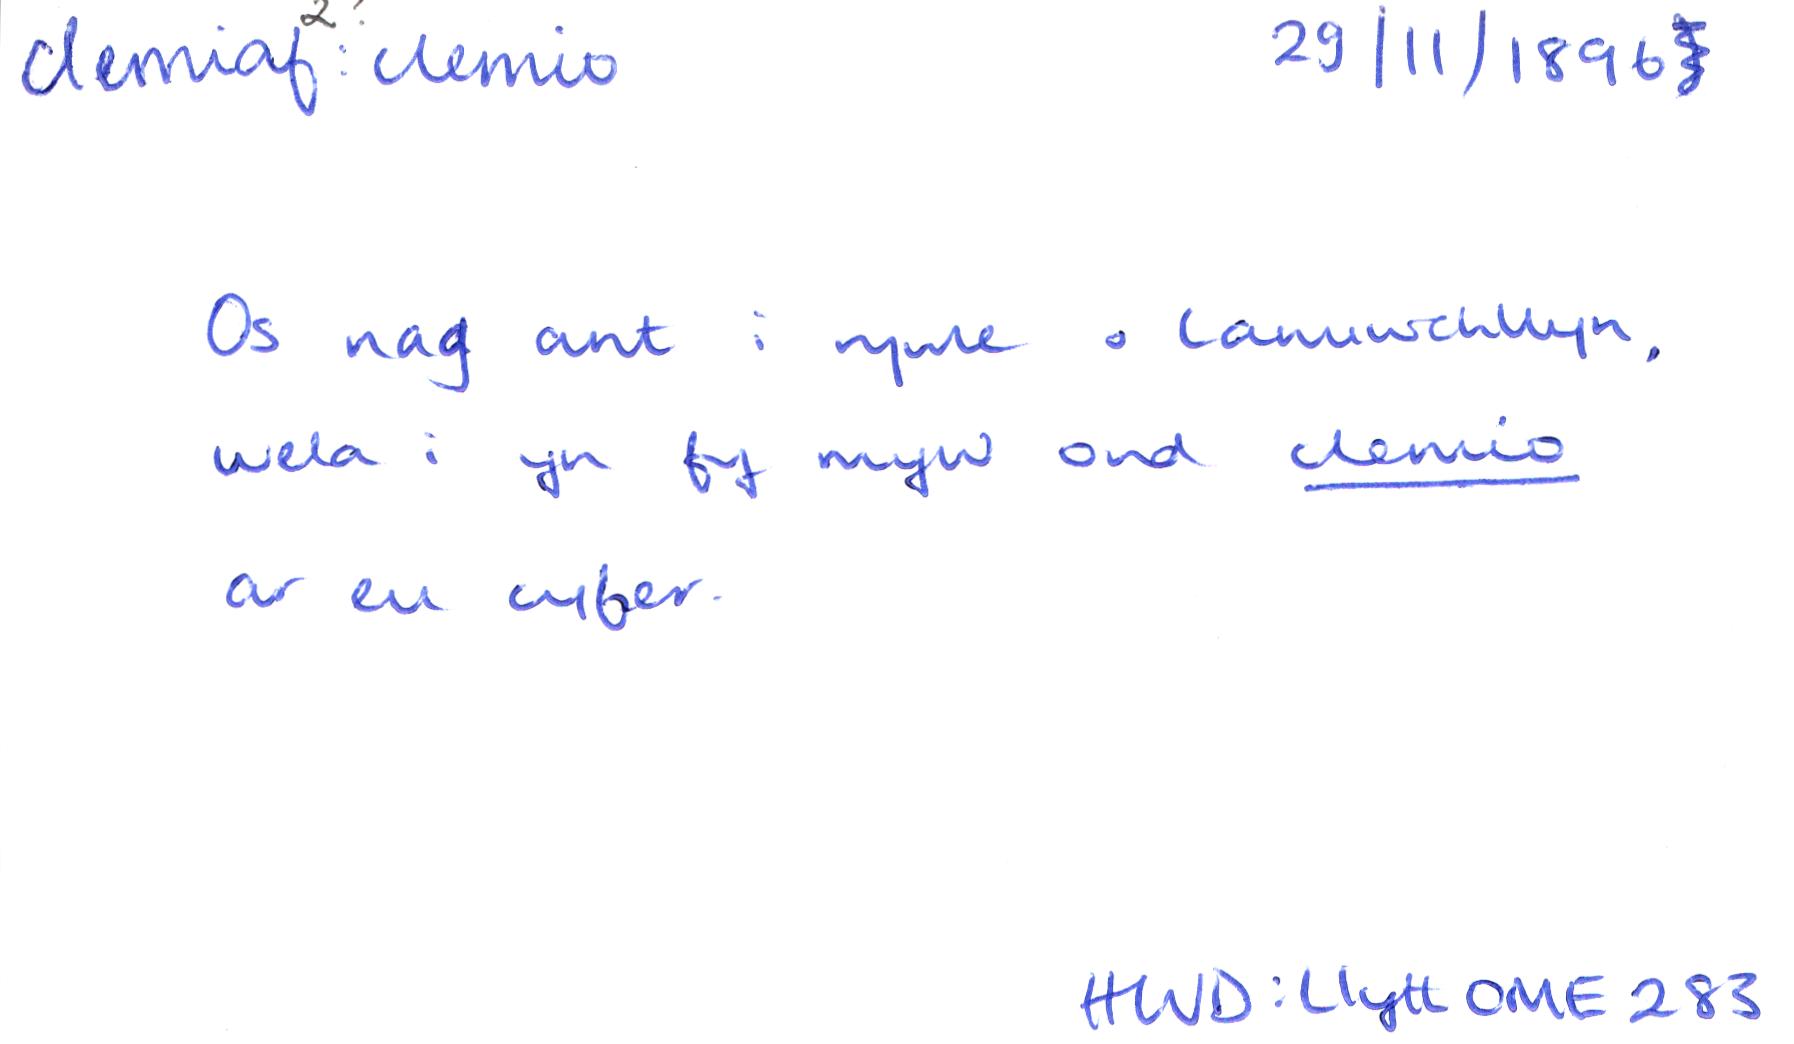 clemiaf²?: clemio 29/11/1896
Os nag ant i rywle o Lanuwchllyn,
wela i yn fy myw ond clemio
ar eu cyfer.
HWD: Llytt OME 283